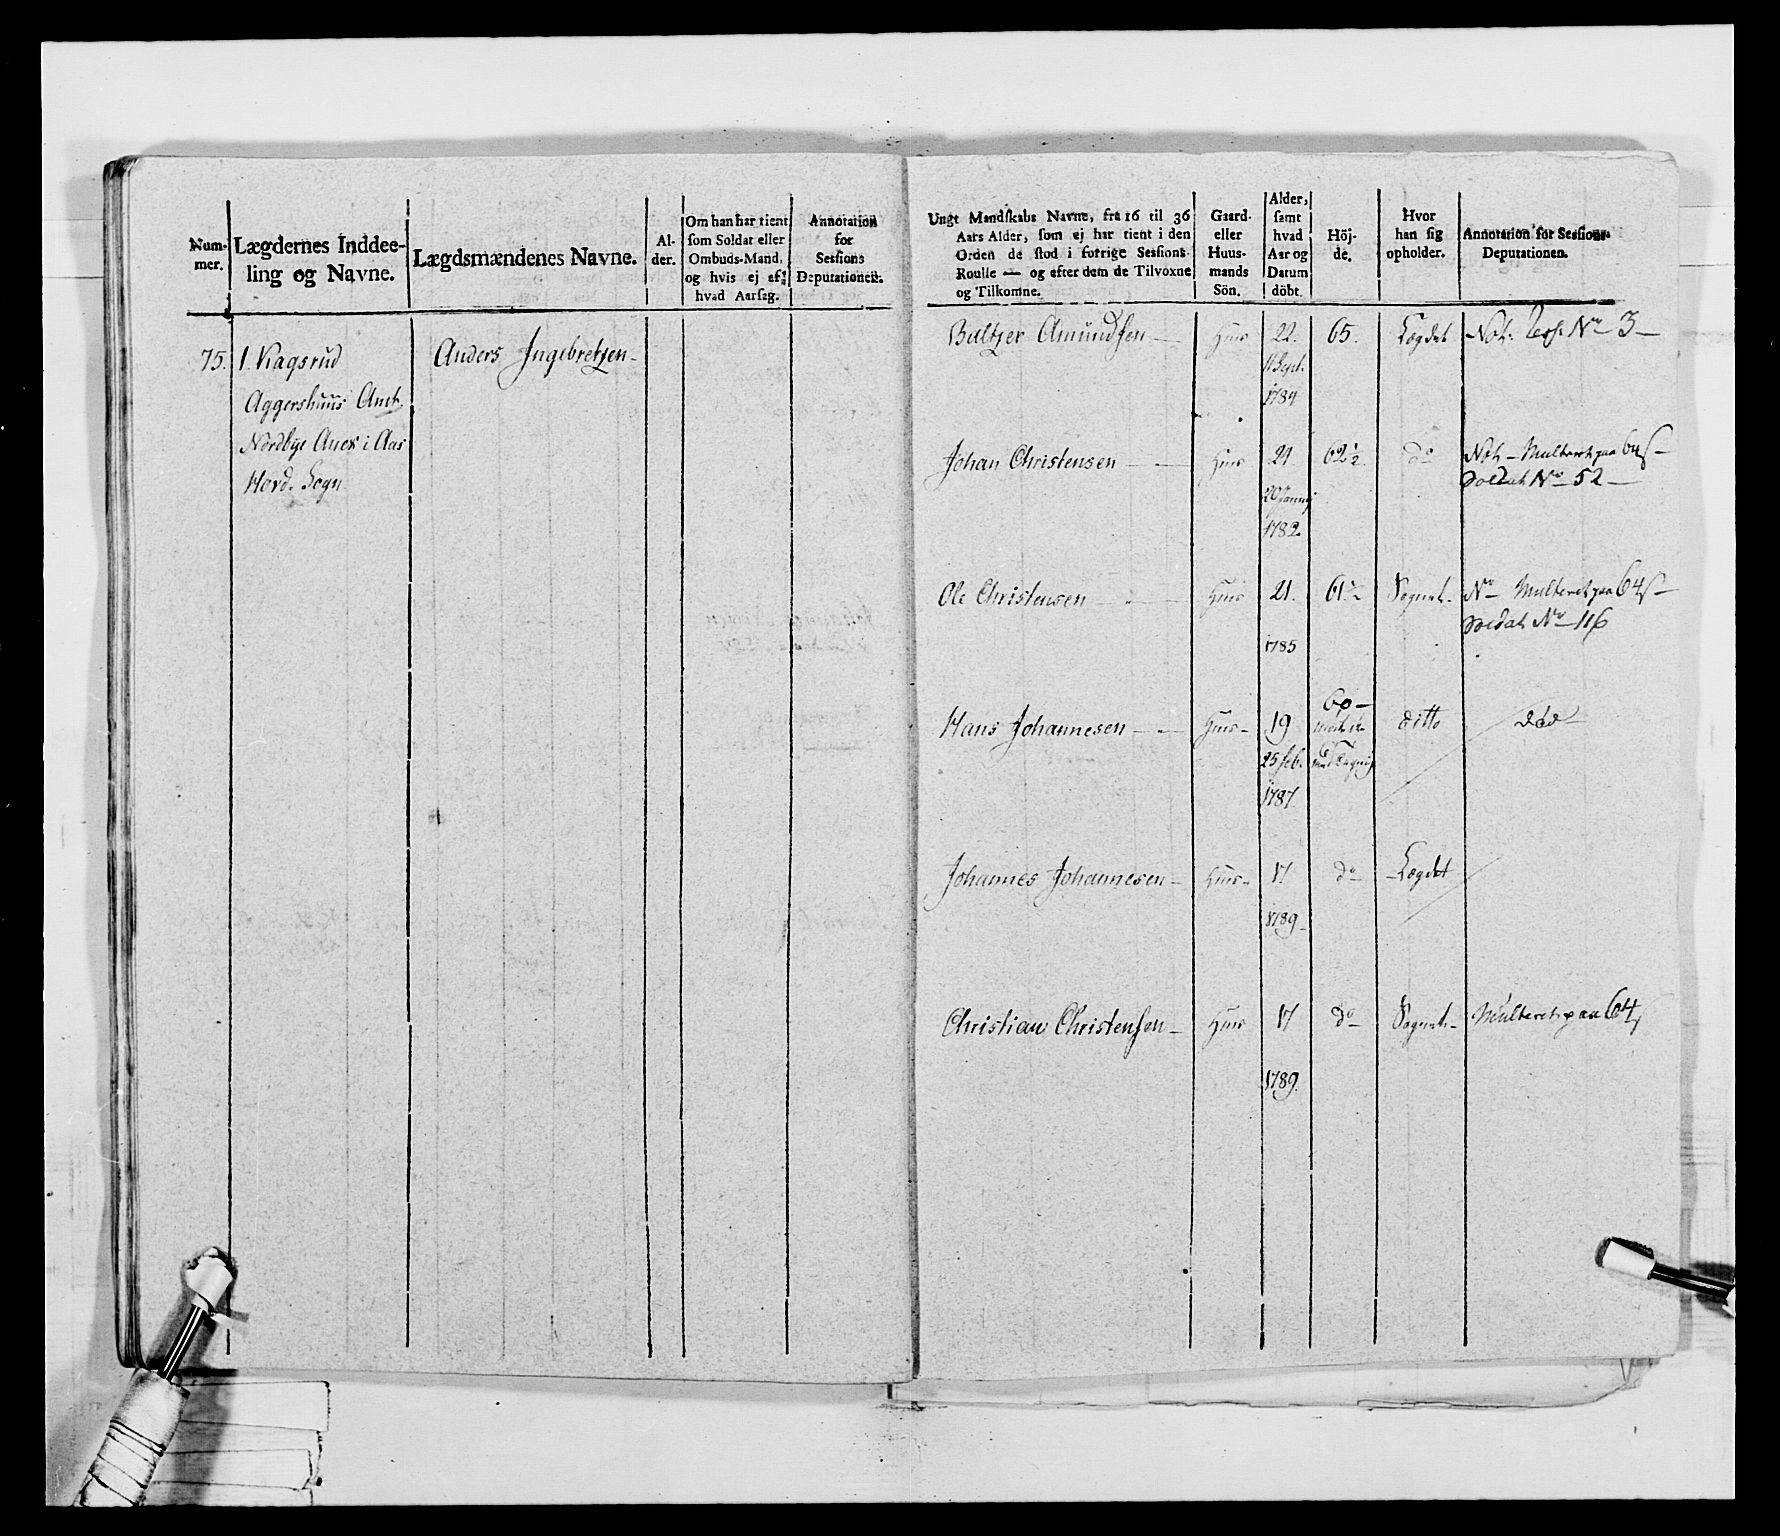 Num-
mer.
Lægdernes Inddee-
ling og Navne.
Lægdsmændenes Navne.
Al-
der.
Om han har tient
som Soldat eller
Ombuds-Mand,
og hvis ej af
hvad Aarsag.
Annotation
for
Sessions
Deputationen.
75.
Aggershuus Amt.
Nordbye Anex i Aas
Hovd. Sogn
Anders Ingebretsen
Ungt Mandskabs Navne, fra 16 til 36
Aars Alder, som ej har tient i den
Orden de stod i forrige Sessions
Roulle — og efter dem de Tilvoxne
og Tilkomne.
Gaard-
eller
Huus-
mands
Sön.
Alder,
samt
hvad
Aar og
Datum
döbt.
Höj-
de.
Hvor
han sig
opholder.
Annotation for Sessions-
Deputationen.
Baltzer Amundsen — Huus 22. 65. Lægdet Not. No 3 —
11 Sept.
1784
Johan Christensen — Huus 24 62½ do Not — Multeret paa
20 Januarij Soldat No 52 —
1782
Ole Christensen — Huus 21. 61½ Sognet. No Multeret paa 64 s —
Soldat No 116
1785
60 —
Hans Johannesen — Huus — 19 ditto død
25 Feb.
1787
Johannes Johannesen — Huus — 17 do Lægdet
1789
Christian Christensen — Huus 17 do Sognet — Multeret paa 64 s
1789.